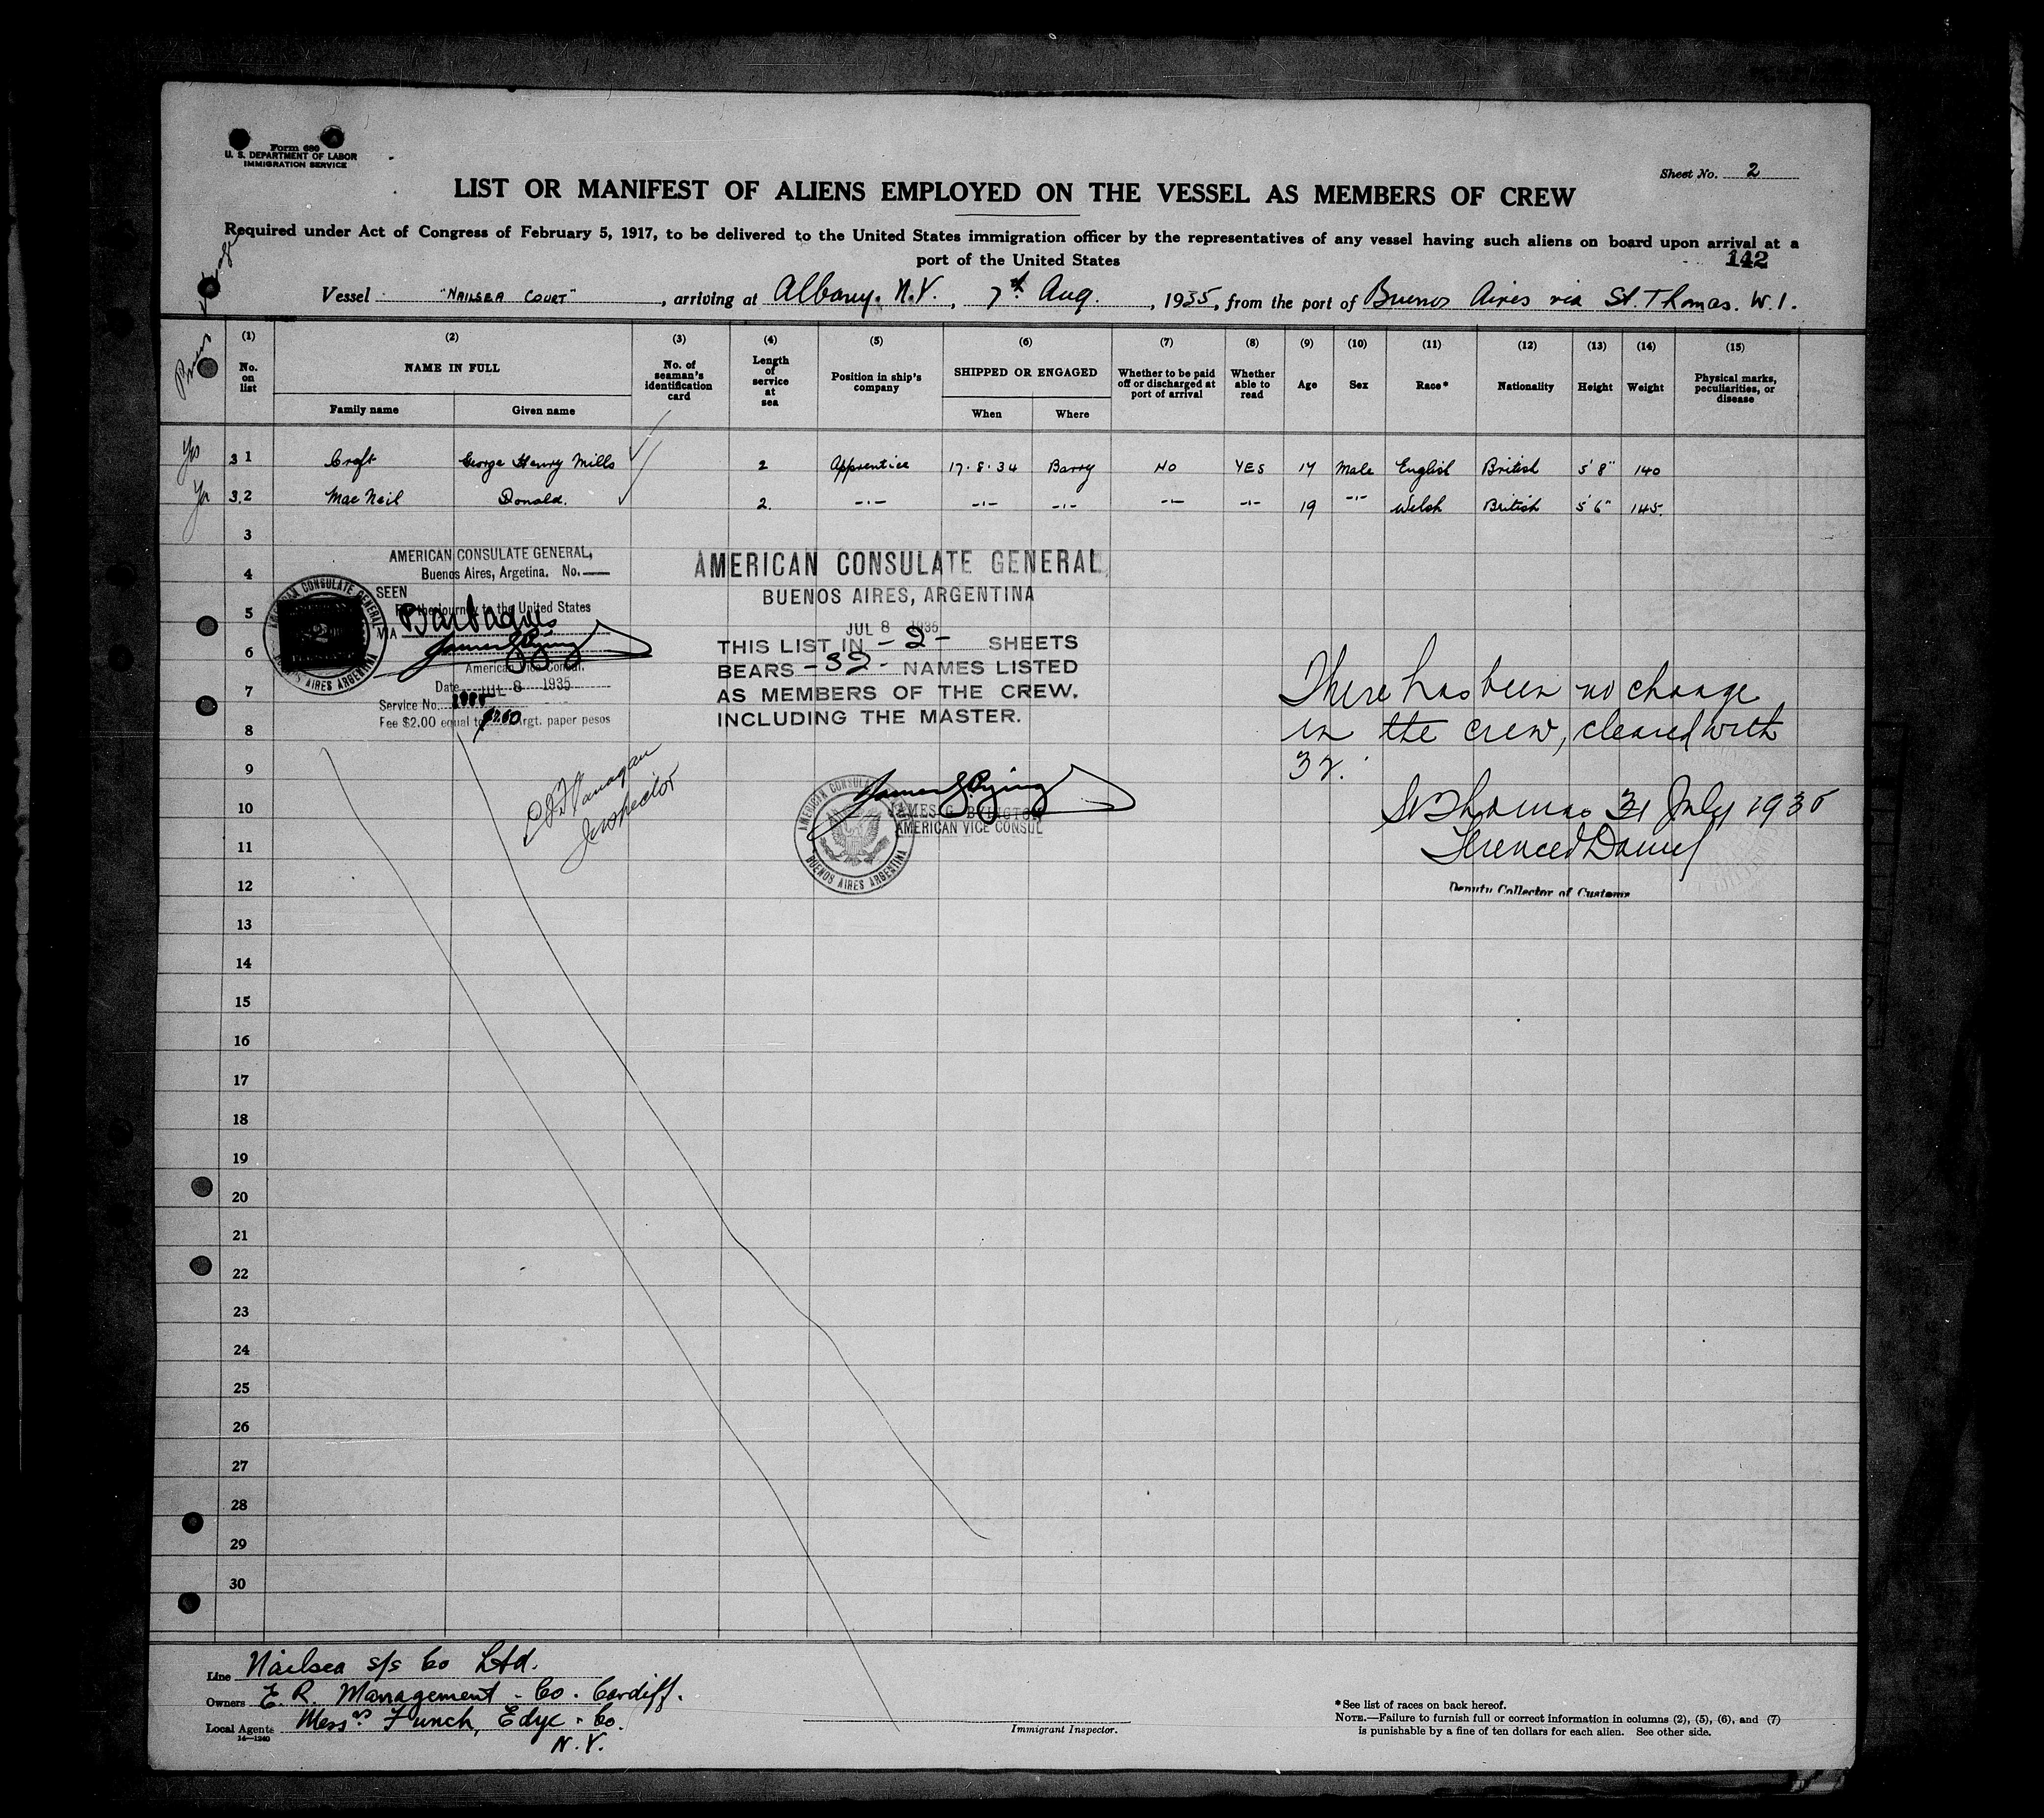 Form 680
U. S. DEPARTMENT OF LABOR
IMMIGRATION SERVICE
Sheet No. 2
LIST OR MANIFEST OF ALIENS EMPLOYED ON THE VESSEL AS MEMBERS OF CREW
Required under Act of Congress of February 5, 1917, to be delivered to the United States immigration officer by the representatives of any vessel having such aliens on board upon arrival at a
port of the United States
142
Vessel "NAILSEA COURT", arriving at Albany. N.Y., 7th Aug., 1935, from the port of Buenos Aires via St. Thomas. W.I.
(1) (2) (3) (4) (5) (6) (7) (8) (9) (10) (11) (12) (13) (14) (15)
No. on list NAME IN FULL No. of seaman's identification card Length of service at sea Position in ship's company SHIPPED OR ENGAGED Whether to be paid off or discharged at port of arrival Whether able to read Age Sex Race* Nationality Height Weight Physical marks, peculiarities, or disease
Family name Given name When Where
Yes 31 Croft George Henry Mills 2 Apprentice 17.8.34 Barry NO YES 17 Male English British 5'8" 140
32 MacNeil Donald. 2. -"- -"- -"- -"- -"- 19 -"- Welsh British 5'6" 145.
3
4
5
6
7
8
9
10
11
12
13
14
15
16
17
18
19
20
21
22
23
24
25
26
27
28
29
30
AMERICAN CONSULATE GENERAL,
Buenos Aires, Argetina. No.
SEEN
For the journey to the United States
VIA
American Vice Consul.
Date JUL 8 1935
Service No.
Fee $2.00 equal to Argt. paper pesos
AMERICAN CONSULATE GENERAL
BUENOS AIRES ARGENTINA
Inspector
AMERICAN CONSULATE GENERAL
BUENOS AIRES, ARGENTINA
JUL 8 1935
THIS LIST IN -2- SHEETS
BEARS -32- NAMES LISTED
AS MEMBERS OF THE CREW.
INCLUDING THE MASTER.
JAMES G. BYINGTON
AMERICAN VICE CONSUL
AMERICAN CONSULATE
BUENOS AIRES ARGENTINA
There has been no change
in the crew, cleared with
32.
St Thomas 31 July 1935
Deputy Collector of Customs
Line Nailsea s/s Co Ltd.
Owners E. R. Management. Co. Cardiff.
Local Agents Messrs. Funch, Edye. Co.
N.Y.
14—1240
Immigrant Inspector.
*See list of races on back hereof.
NOTE.—Failure to furnish full or correct information in columns (2), (5), (6), and (7)
is punishable by a fine of ten dollars for each alien. See other side.